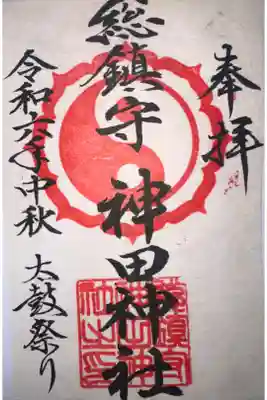 奉拝
総鎮守 神田神社
令和六年中秋
太鼓祭り